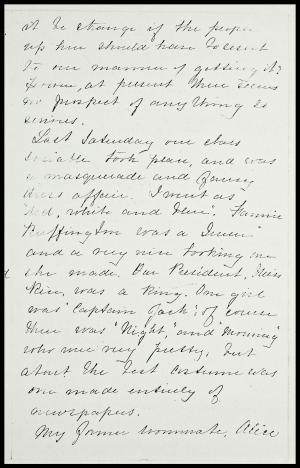 it be strange if the people
up here should have to resort
to our manner of getting it?
However, at present there seems
no prospect of anything so
serious.
Last Saturday our class
sociable took place, and was
a masquerade and fancy
dress affair. I went as
"Red, white and blue". Fannie
Buffington was a Queen
and a very nice looking one
she made. Our President, Miss
Rice, was a King. One girl
was "Captain Jack"; of course
there was "Night," and "Morning"
who were very pretty, but
about the best costume was
one made entirely of
newspapers.
My former roommate, Alice